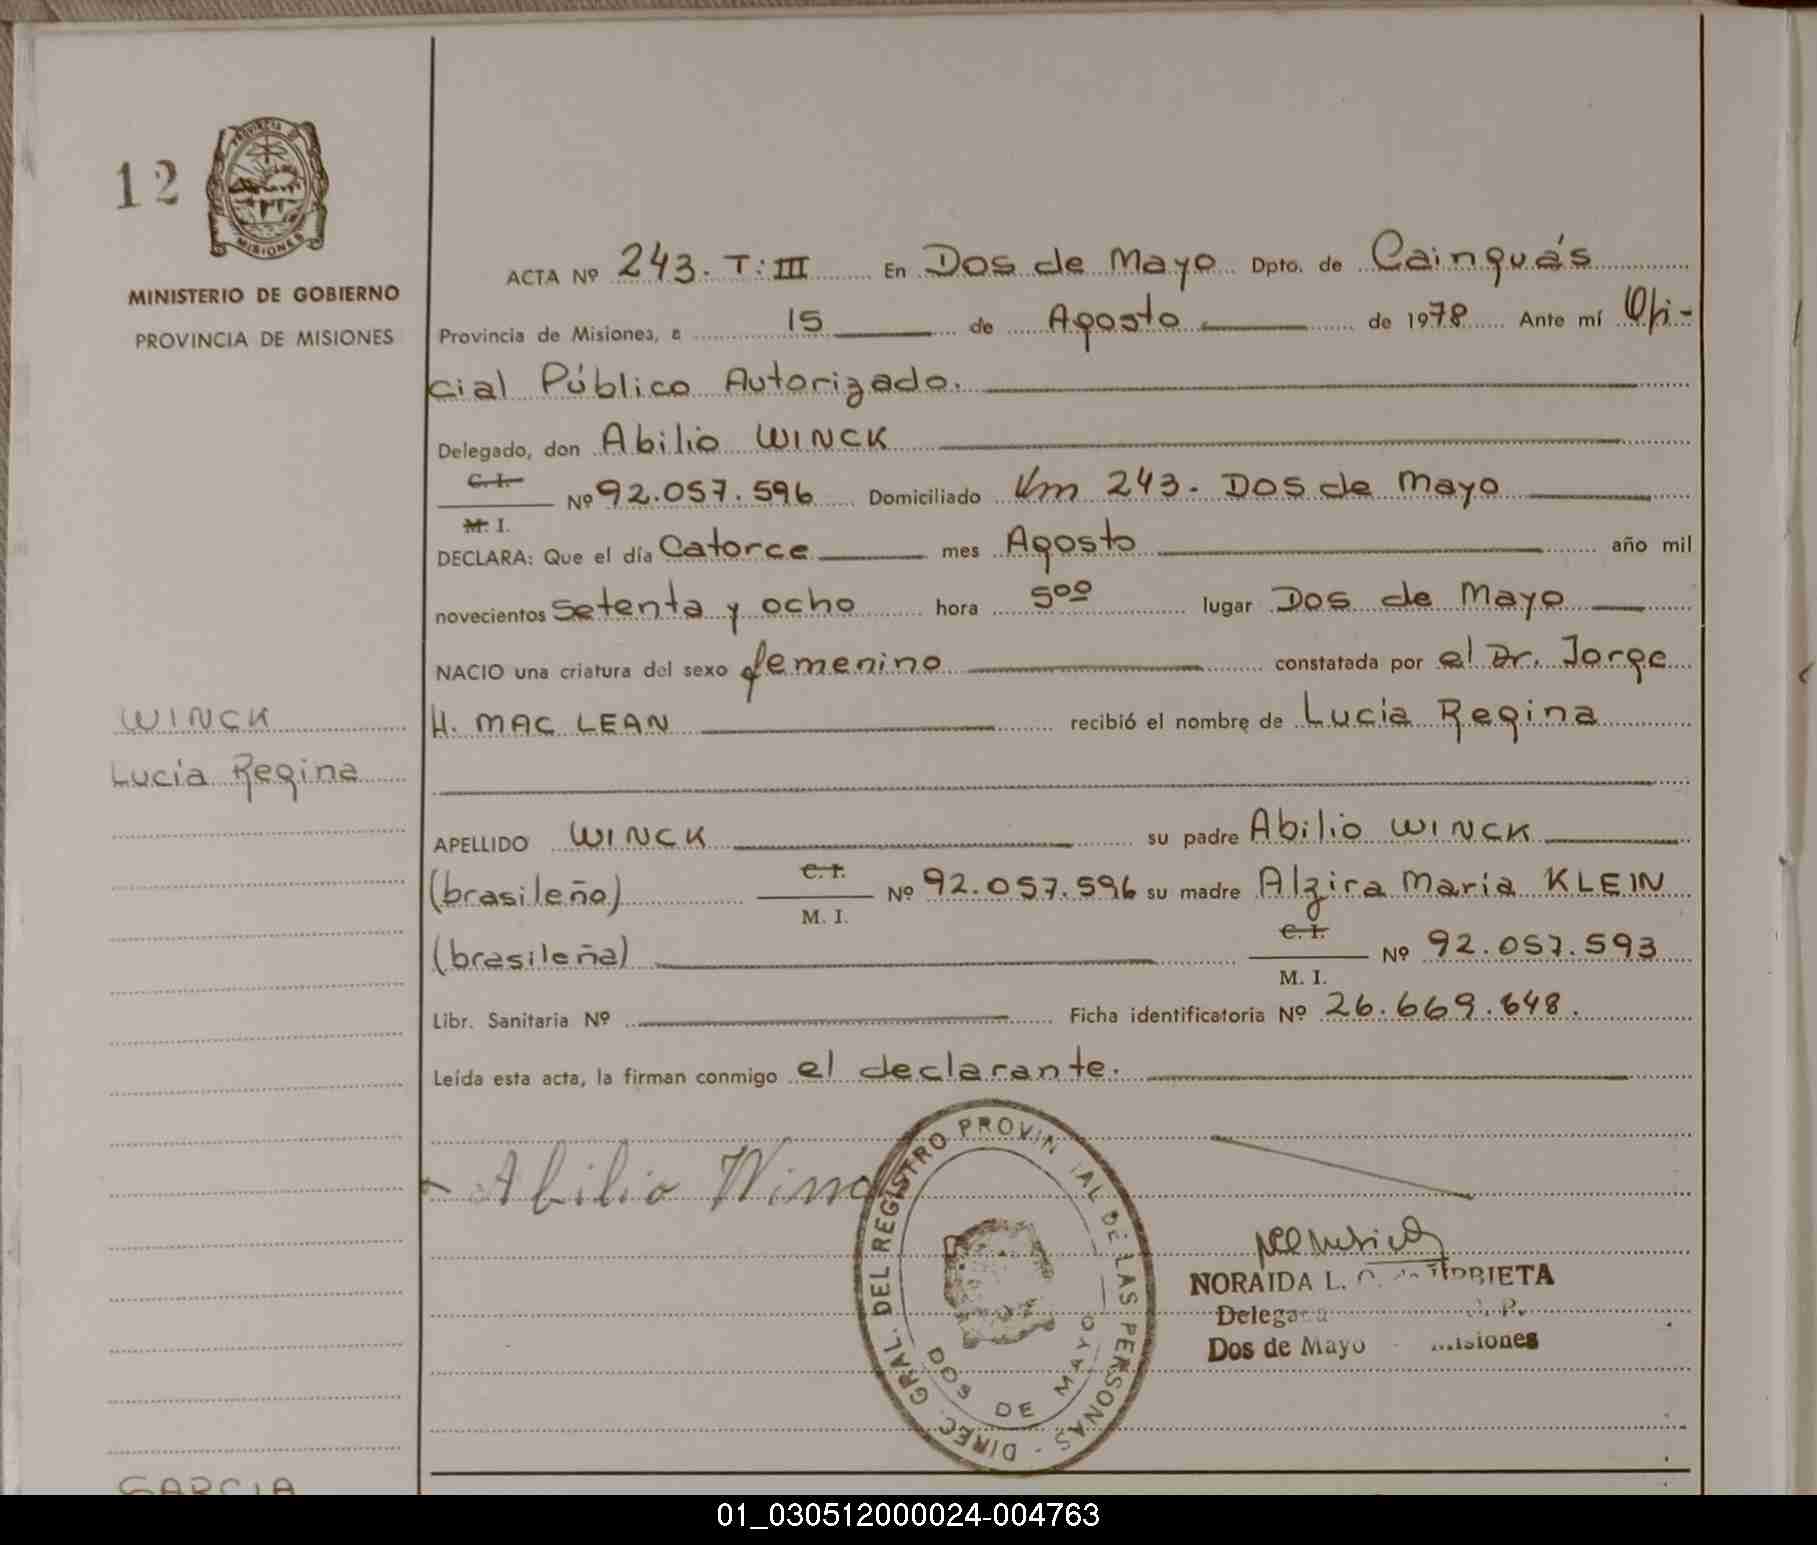 12
PROVINCIA DE
MISIONES
MINISTERIO DE GOBIERNO
PROVINCIA DE MISIONES
WINCK
Lucía Regina
GARCIA
ACTA Nº 243. T: III En Dos de Mayo Dpto. de Cainguás
Provincia de Misiones, a 15 de Agosto de 1978 Ante mí Ofi-
cial Público Autorizado.
Delegado, don Abilio WINCK
C. I.
Nº 92.057.596 Domiciliado Km 243. Dos de Mayo
M. I.
DECLARA: Que el día Catorce mes Agosto año mil
novecientos setenta y ocho hora 5ºº lugar Dos de Mayo
NACIO una criatura del sexo femenino constatada por el Dr. Jorge
H. MAC LEAN recibió el nombre de Lucía Regina
APELLIDO WINCK su padre Abilio WINCK
C. I.
(brasileño) Nº 92.057.596 su madre Alzira María KLEIN
M. I.
C. I.
(brasileña) Nº 92.057.593
M. I.
Libr. Sanitaria Nº Ficha identificatoria Nº 26.669.648.
Leída esta acta, la firman conmigo el declarante.
Abilio Winc
DIREC. GRAL. DEL REGISTRO PROVIN IAL DE LAS PERSONAS -
DOS DE MAYO
NORAIDA L.
Dos de Mayo
01_030512000024-004763